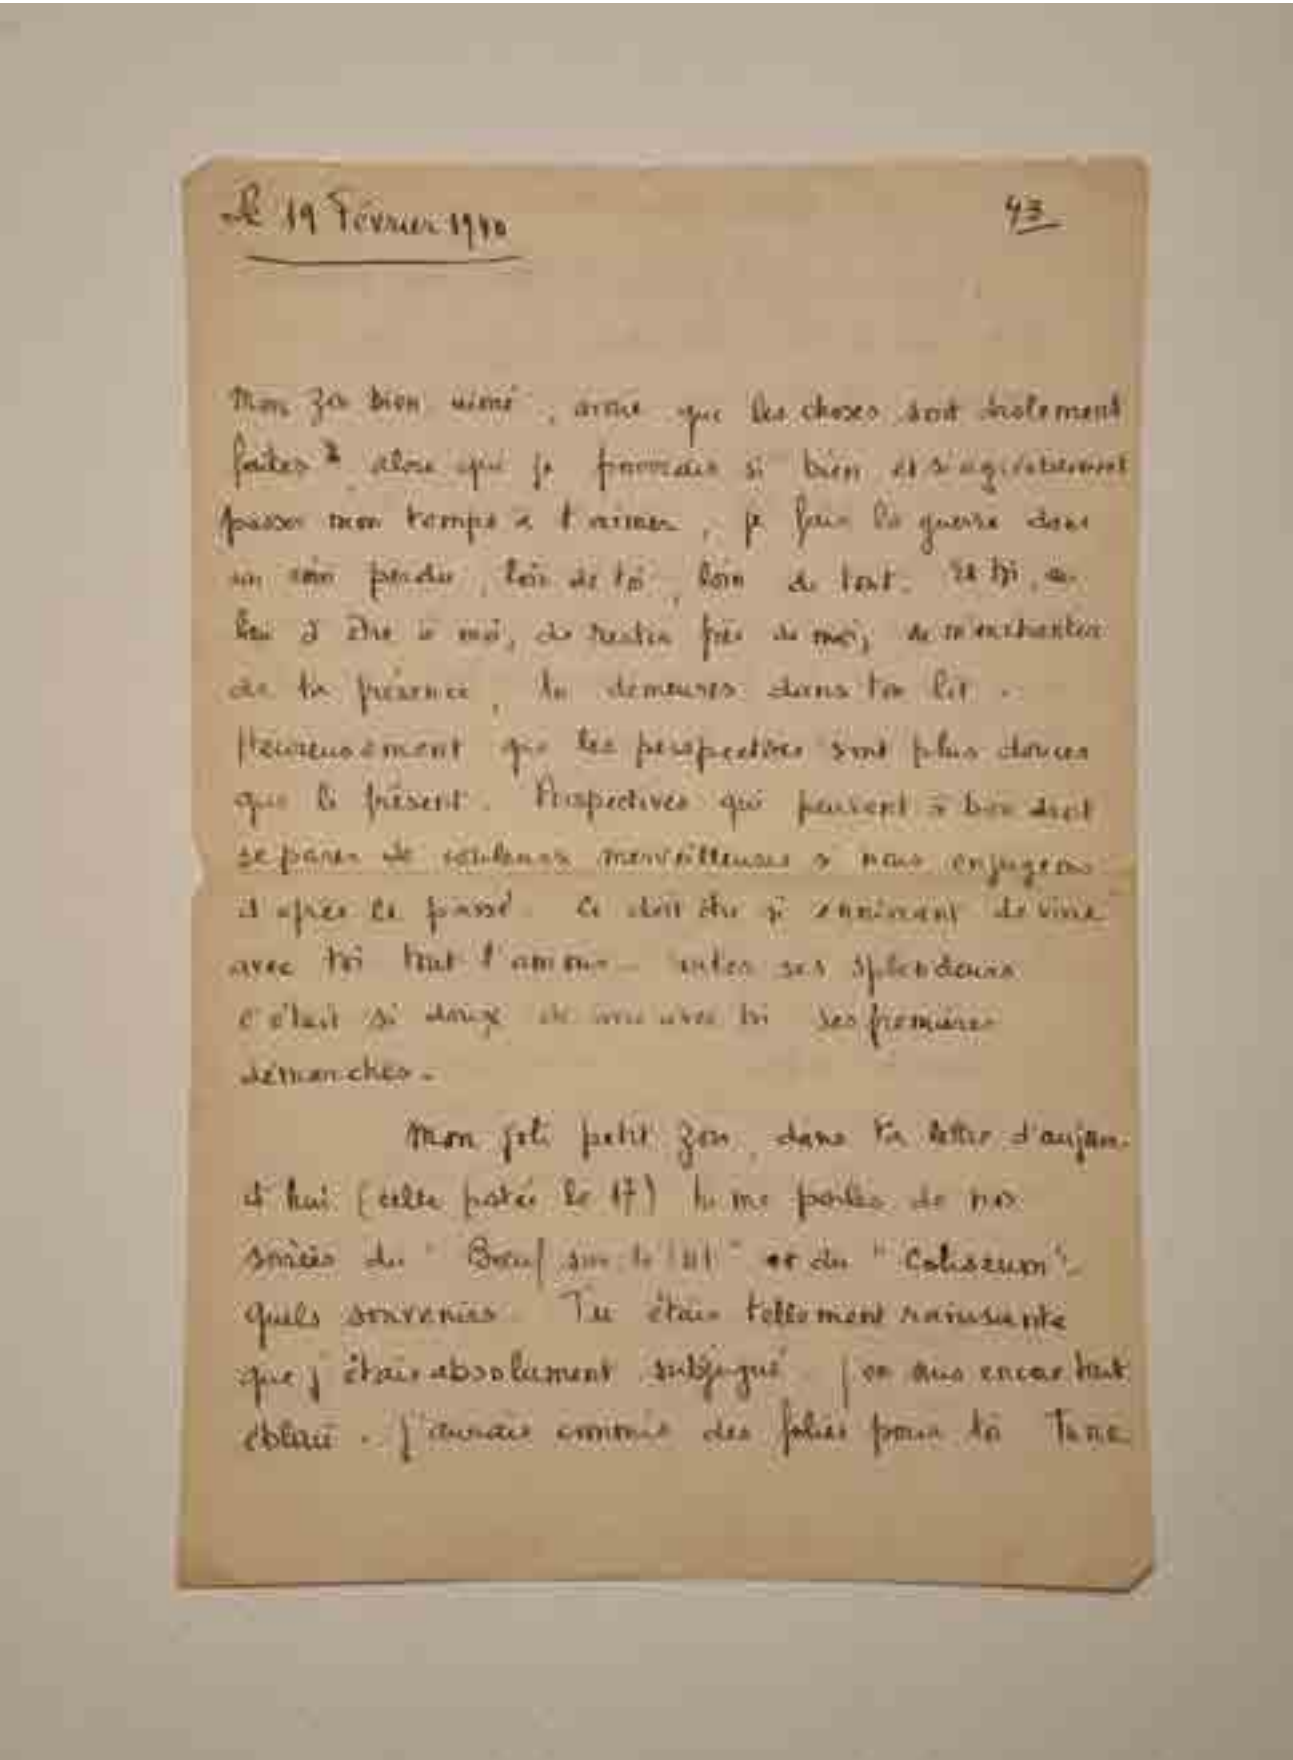 Le 19 Février 1940
43
Mon Zou bien aimé, avoue que les choses sont drôlement
faites : alors que je pourrais si bien et si agréablement
passer mon temps à t'aimer, je fais la guerre dans
un coin perdu, loin de toi, loin de tout. Et toi, au
lieu d'être à moi, de rester près de moi, de m'enchanter
de ta présence, tu demeures dans ton lit.
Heureusement que les perspectives sont plus douces
que le présent. Perspectives qui peuvent à bon droit
se parer de couleurs merveilleuses si nous en jugeons
d'après le passé. Ce doit être si enivrant de vivre
avec toi tout l'amour toutes ses splendeurs
c'était si doux de vivre avec toi ses premières
démarches.
Mon joli petit Zou, dans ta lettre d'aujour-
d'hui (celle postée le 17) tu me parles de nos
soirées du "Bœuf sur le toit" et du "Coliseum".
Quels souvenirs. Tu étais tellement ravissante
que j'étais absolument subjugué. J'en suis encore tout
ébloui. J'aurais commis des folies pour toi